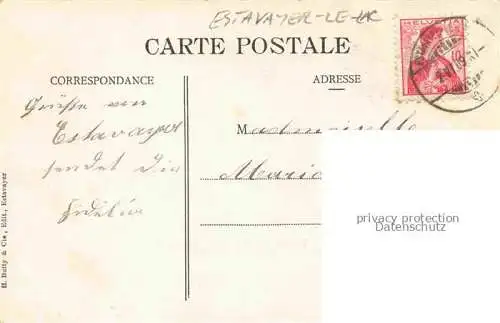 ESTAVAYER-LE-LAC
HELVETIA
10
CARTE POSTALE
CORRESPONDANCE
ADRESSE
Grüsse von
Estavayer
sendet Dir
Mademoiselle
Marie
privacy protection
Datenschutz
H. Butty & Cie., Edit., Estavayer